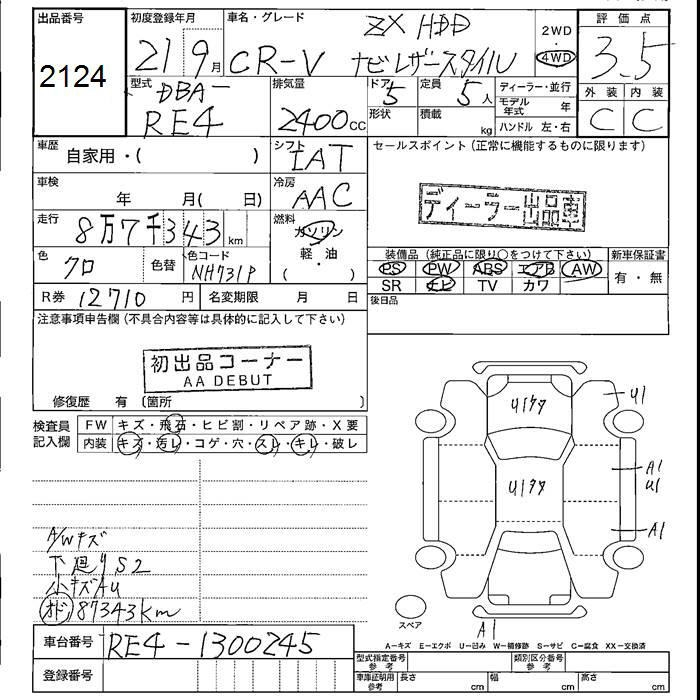 出品番号 初度登録年月 車名・グレード 評価点
2124 21 9月 CR-V ZX HDD ナビレザースタイル 2WD・4WD 3.5
外装 内装
C C
型式 DBA- RE4 排気量 2400cc ドア 5 形状 定員 5人 積載 kg ディーラー・並行
モデル年式 年
ハンドル 左・右
車歴 自家用・( ) シフト IAT セールスポイント (正常に機能するものに限ります)
車検 年 月( 日) 冷房 AAC
ディーラー出品車
走行 8万7千343km 燃料 ガソリン
軽・油
( )
色 クロ 色替 色コード NH731P
装備品 (純正品に限り○をつけて下さい) 新車保証書
PS PW ABS エアB AW 有・無
SR ナビ TV カワ
R券 12710円 名変期限 月 日 後日品
注意事項申告欄 (不具合内容等は具体的に記入して下さい)
初出品コーナー
AA DEBUT
修復歴 有 〔箇所 〕
検査員記入欄 FW キズ・飛石・ヒビ割・リペア跡・X要
内装 キズ・汚レ・コゲ・穴・スレ・キレ・破レ
U1
A1
U1
A1
A/Wキズ
下廻りS2
小キズAU
オド 87343km
スペア
A1
A=キズ E=エクボ U=凹み W=補修跡 S=サビ C=腐食 XX=交換済
車台番号 RE4-1300245
型式指定番号 参考 類別区分番号 参考
登録番号
車庫証明用 参考 長さ cm 幅 cm 高さ cm